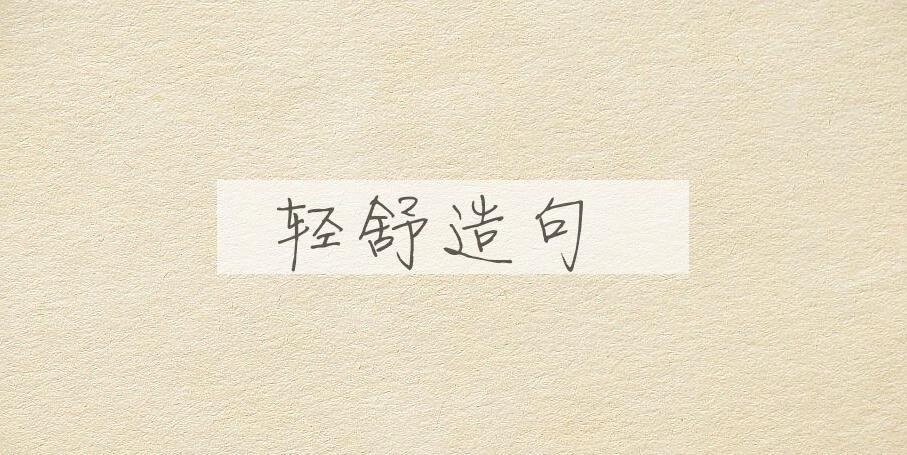 轻舒造句